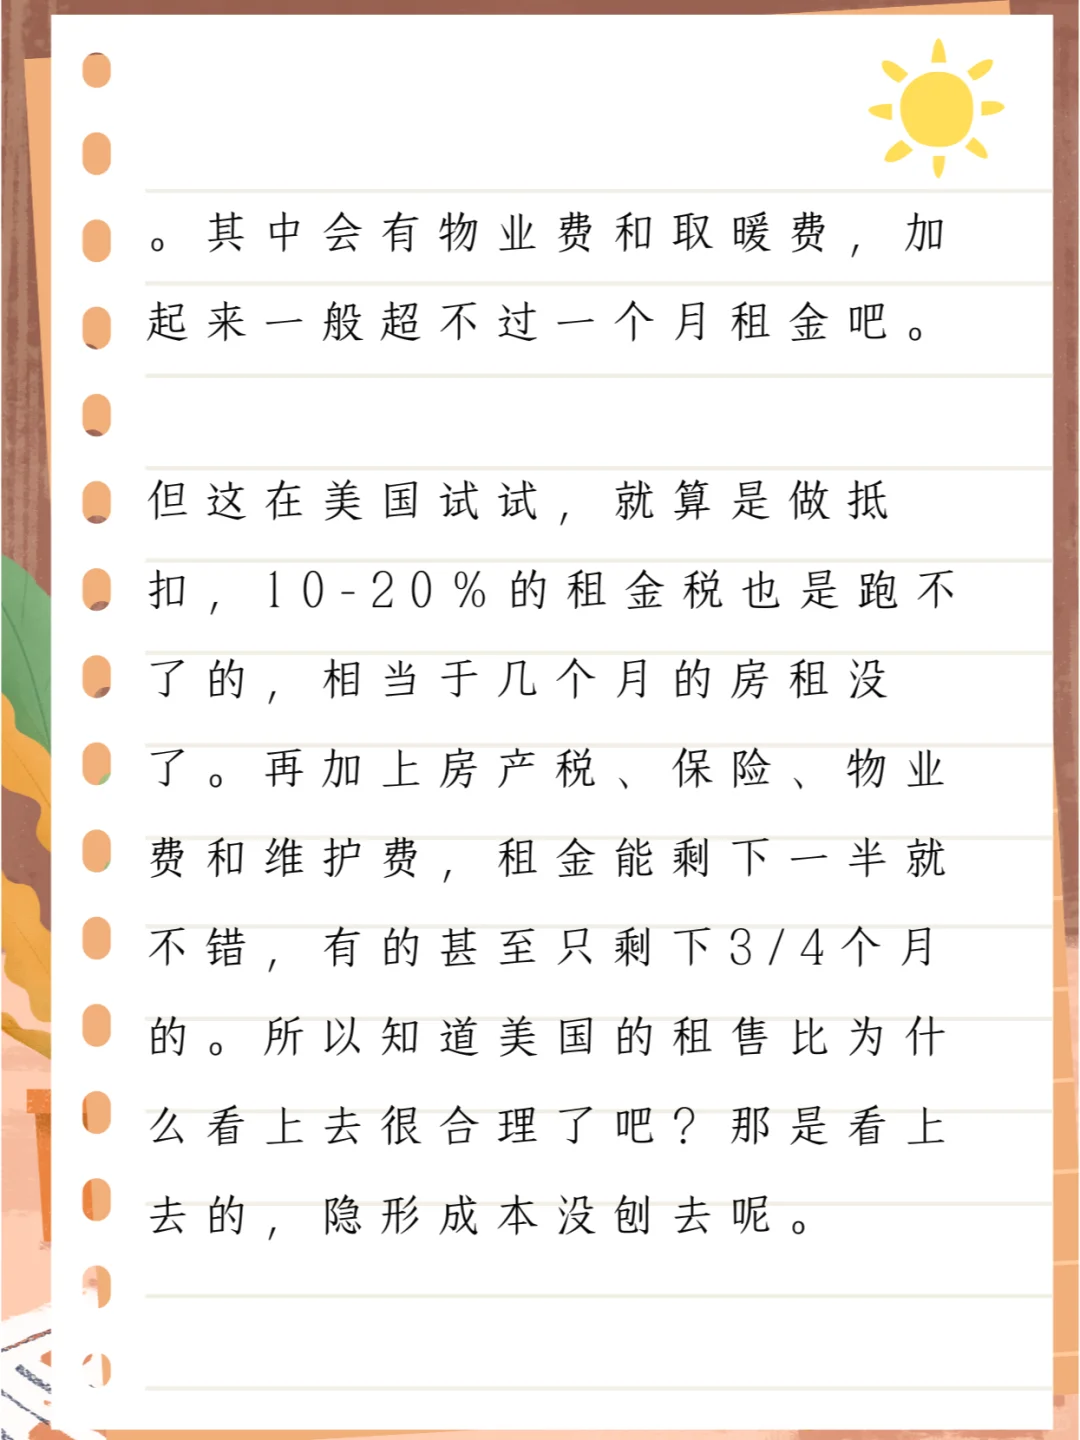 。其中会有物业费和取暖费，加
起来一般超不过一个月租金吧。
但这在美国试试，就算是做抵
扣，10-20%的租金税也是跑不
了的，相当于几个月的房租没
了。再加上房产税、保险、物业
费和维护费，租金能剩下一半就
不错，有的甚至只剩下3/4个月
的。所以知道美国的租售比为什
么看上去很合理了吧？那是看上
去的，隐形成本没刨去呢。